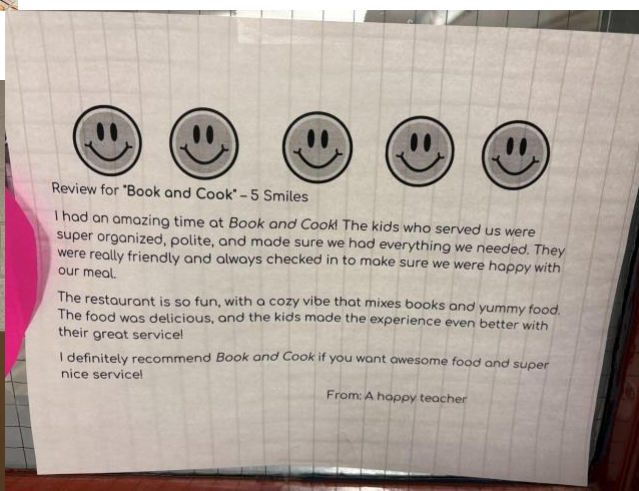 Review for "Book and Cook" – 5 Smiles
I had an amazing time at Book and Cook! The kids who served us were
super organized, polite, and made sure we had everything we needed. They
were really friendly and always checked in to make sure we were happy with
our meal.
The restaurant is so fun, with a cozy vibe that mixes books and yummy food.
The food was delicious, and the kids made the experience even better with
their great service!
I definitely recommend Book and Cook if you want awesome food and super
nice service!
From: A happy teacher